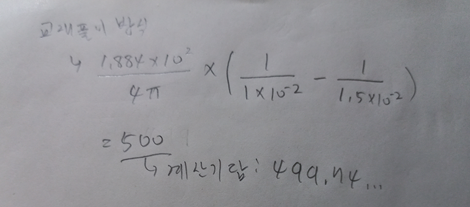 교재풀이 방식
↳ 1.884×10² / 4π × ( 1 / 1×10⁻² - 1 / 1.5×10⁻² )
= 500
↳ 계산기답: 499.74...